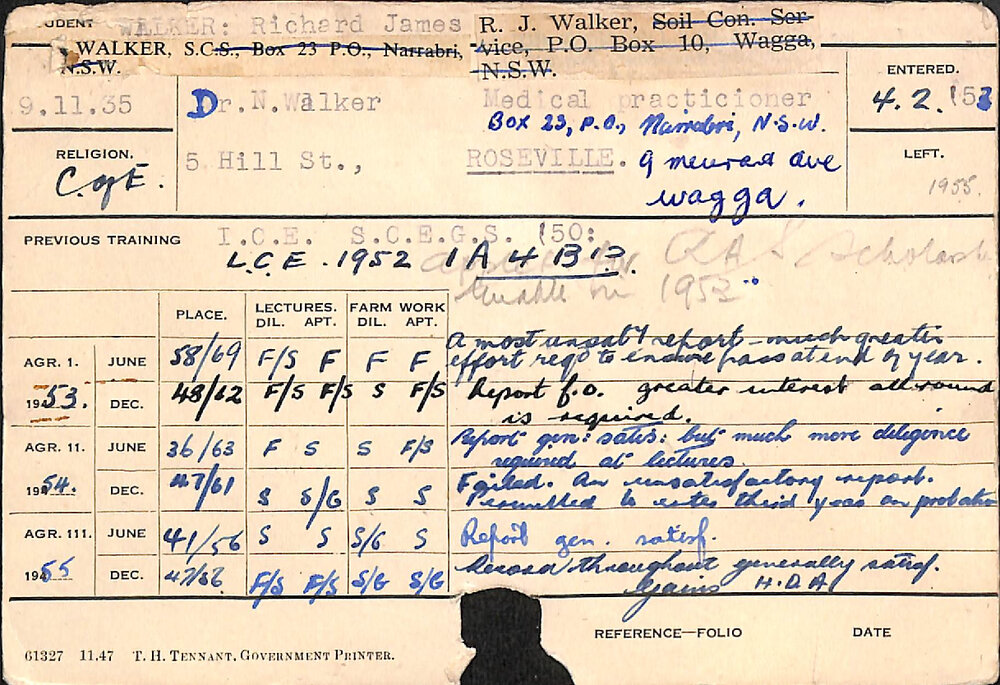 UDENT WALKER: Richard James R. J. Walker, Soil Con. Ser-
WALKER, S.C.S., Box 23 P.O., Narrabri, vice, P.O. Box 10, Wagga,
N.S.W. N.S.W.
ENTERED.
9.11.35 Dr.N.Walker Medical practicioner 4.2.'53
Box 23, P.O., Narrabri, N.S.W.
RELIGION. 5 Hill St., ROSEVILLE. 9 ave LEFT.
C of E. 1955.
wagga.
PREVIOUS TRAINING I.C.E. S.C.E.G.S. '50:
L.C.E. 1952 1A 4B RAS Scholarsh
1952
PLACE. LECTURES. FARM WORK
DIL. APT. DIL. APT.
A most unsat report - much greater
AGR. 1. JUNE 58/69 F/S F F F effort reqd to ensure pass at end of year.
1953. DEC. 48/62 F/S F/S S F/S Report f.o. greater interest all round
is required.
AGR. 11. JUNE 36/63 F S S F/S Report gen: satis: but much more diligence
required at lectures.
1954. DEC. 47/61 S S/G S S Failed. An unsatisfactory report.
Permitted to enter third year on probation
AGR. 111. JUNE 41/56 S S S/G S Report gen. satisf.
1955 DEC. 47/56 F/S F/S S/G S/G Record throughout generally satisf.
Gains H.D.A
REFERENCE—FOLIO DATE
61327 11.47 T. H. TENNANT, GOVERNMENT PRINTER.